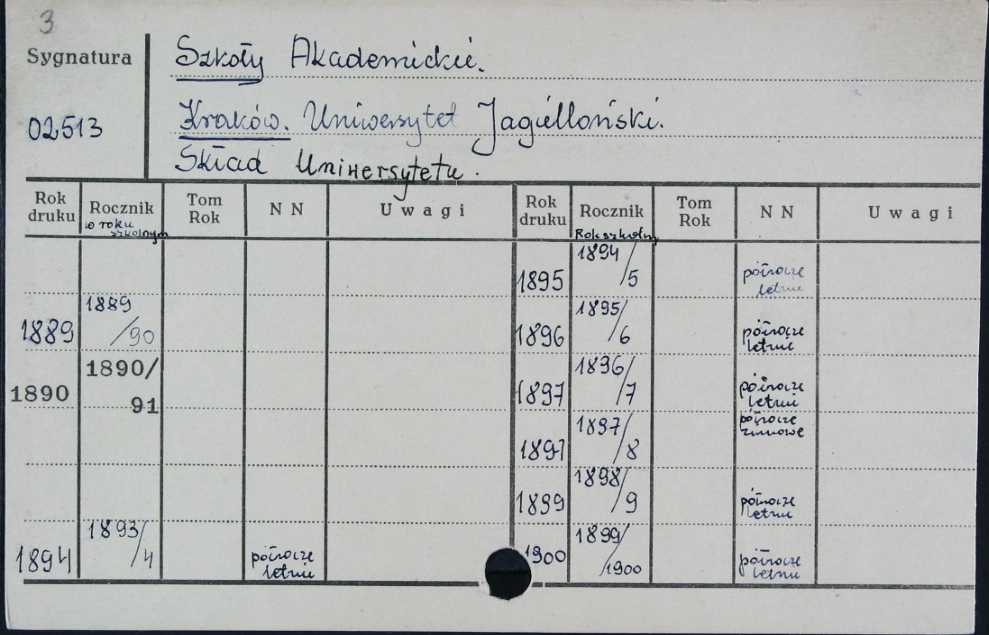 3
Sygnatura
Szkoły Akademickie.
02513
Kraków. Uniwersytet Jagielloński.
Skład Uniwersytetu.
Rok druku Rocznik w roku szkolnym Tom Rok N N Uwagi Rok druku Rocznik Rok szkolny Tom Rok N N Uwagi
1895 1894/5 półrocze letnie
1889 1889/90 1896 1895/6 półrocze letnie
1890 1890/91 1897 1896/7 półrocze letnie
1897 1897/8 półrocze zimowe
1899 1898/9 półrocze letnie
1894 1893/4 półrocze letnie 1900 1899/1900 półrocze letnie